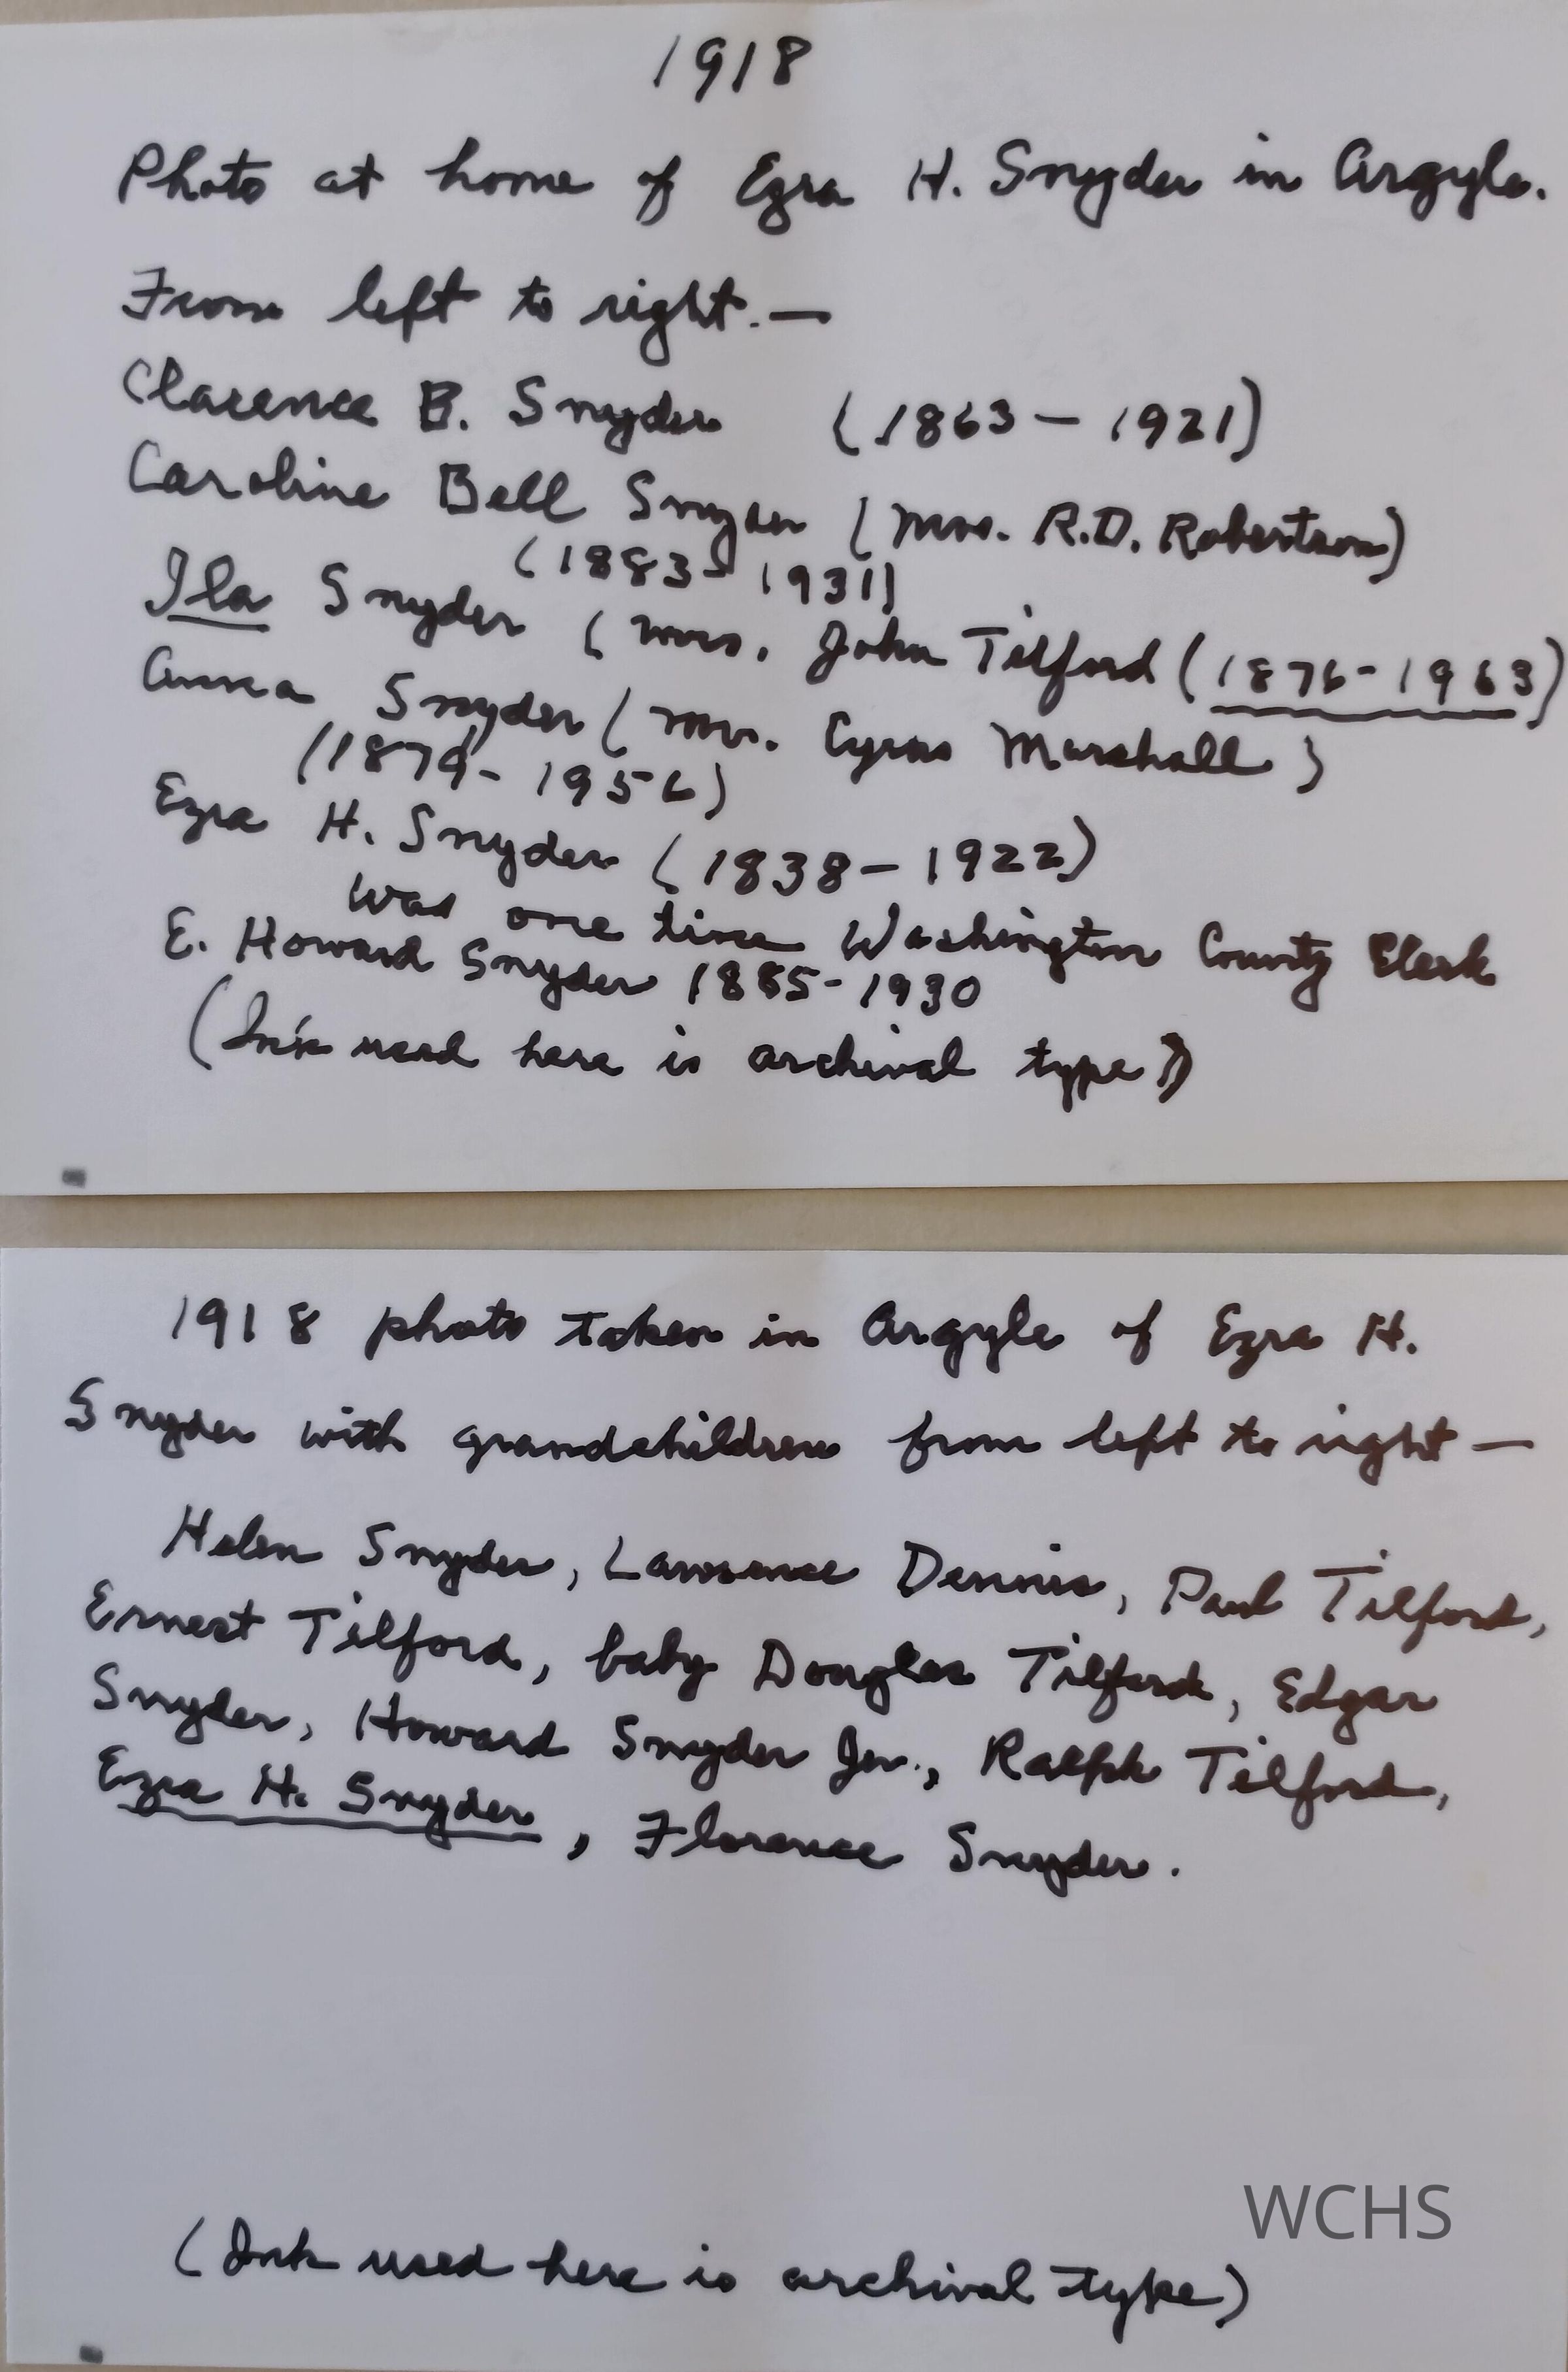 1918
Photo at home of Ezra H. Snyder in Argyle.
From left to right.—
Clarence B. Snyder (1863 - 1921)
Caroline Bell Snyder (Mrs. R.D. Robertson)
(1883 - 1931)
Ila Snyder (Mrs. John Tilford (1876-1963)
Anna Snyder (Mrs. Cyrus Marshall)
(1879- 1956)
Ezra H. Snyder (1838 - 1922)
was one time Washington County Clerk
E. Howard Snyder 1885-1930
(Ink used here is archival type)
1918 photo taken in Argyle of Ezra H.
Snyder with grandchildren from left to right —
Helen Snyder, Lawrence Dennis, Paul Tilford,
Ernest Tilford, baby Douglas Tilford, Edgar
Snyder, Howard Snyder Jr., Ralph Tilford,
Ezra H. Snyder, Florence Snyder.
WCHS
(Ink used here is archival type)